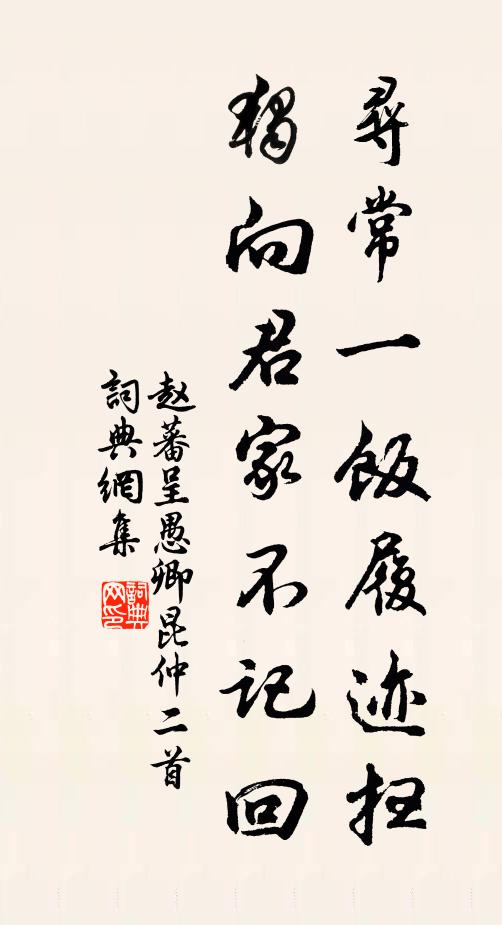 尋常一飯履迹抂
獨向君家不記回
赵蕃呈愚卿昆仲二首
詞典網集
詞典网印